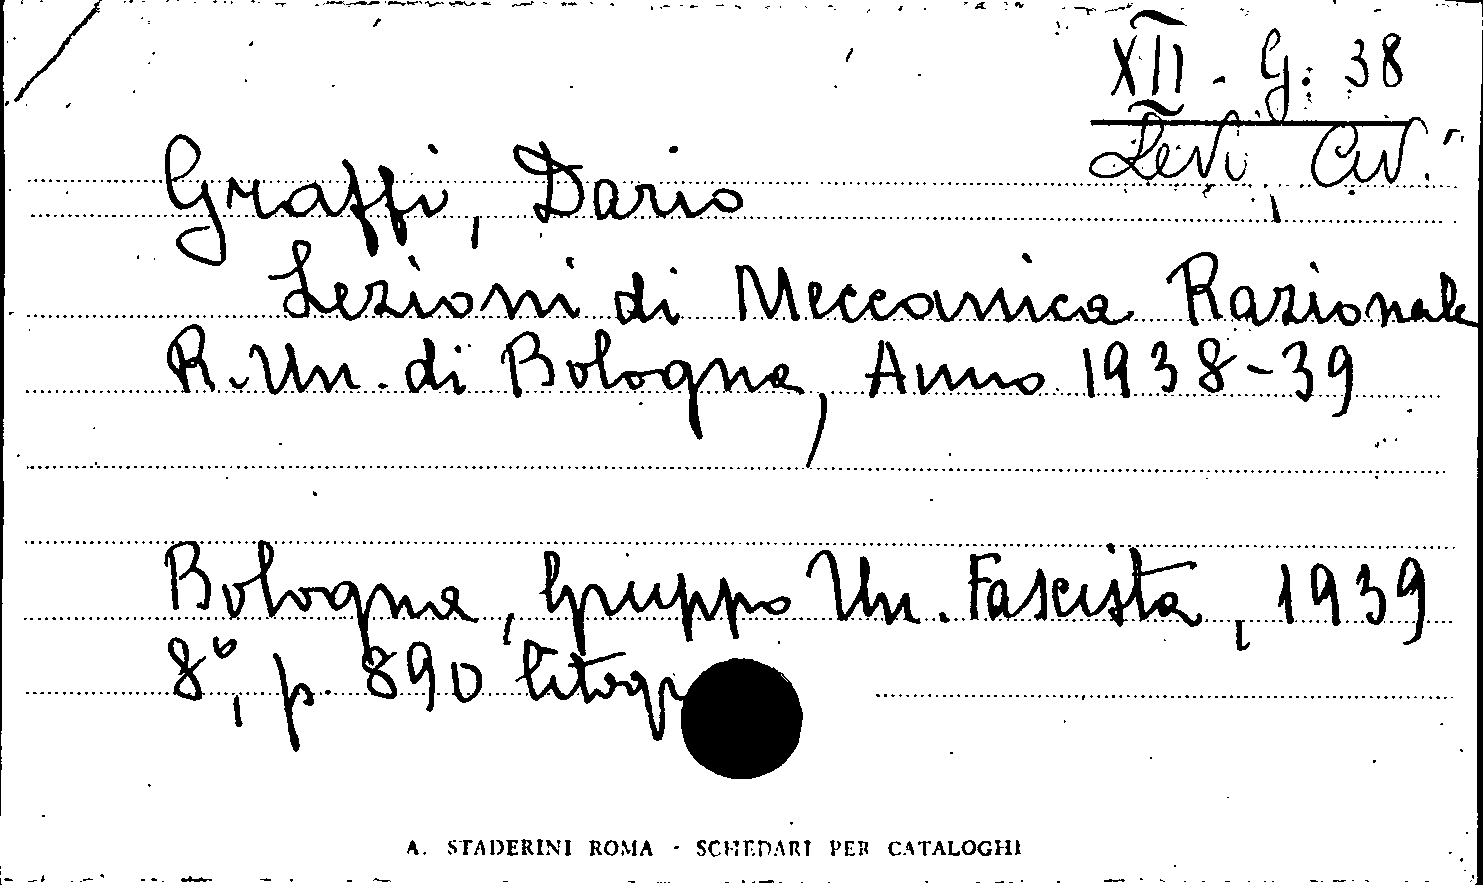 XII - G. 38
Levi Civ.
Graffi, Dario
Lezioni di Meccanica Razionale
R. Un. di Bologna, Anno 1938-39
Bologna, Gruppo Un. Fascista, 1939
8°, p. 890 litogr
A. STADERINI ROMA - SCHEDARI PER CATALOGHI